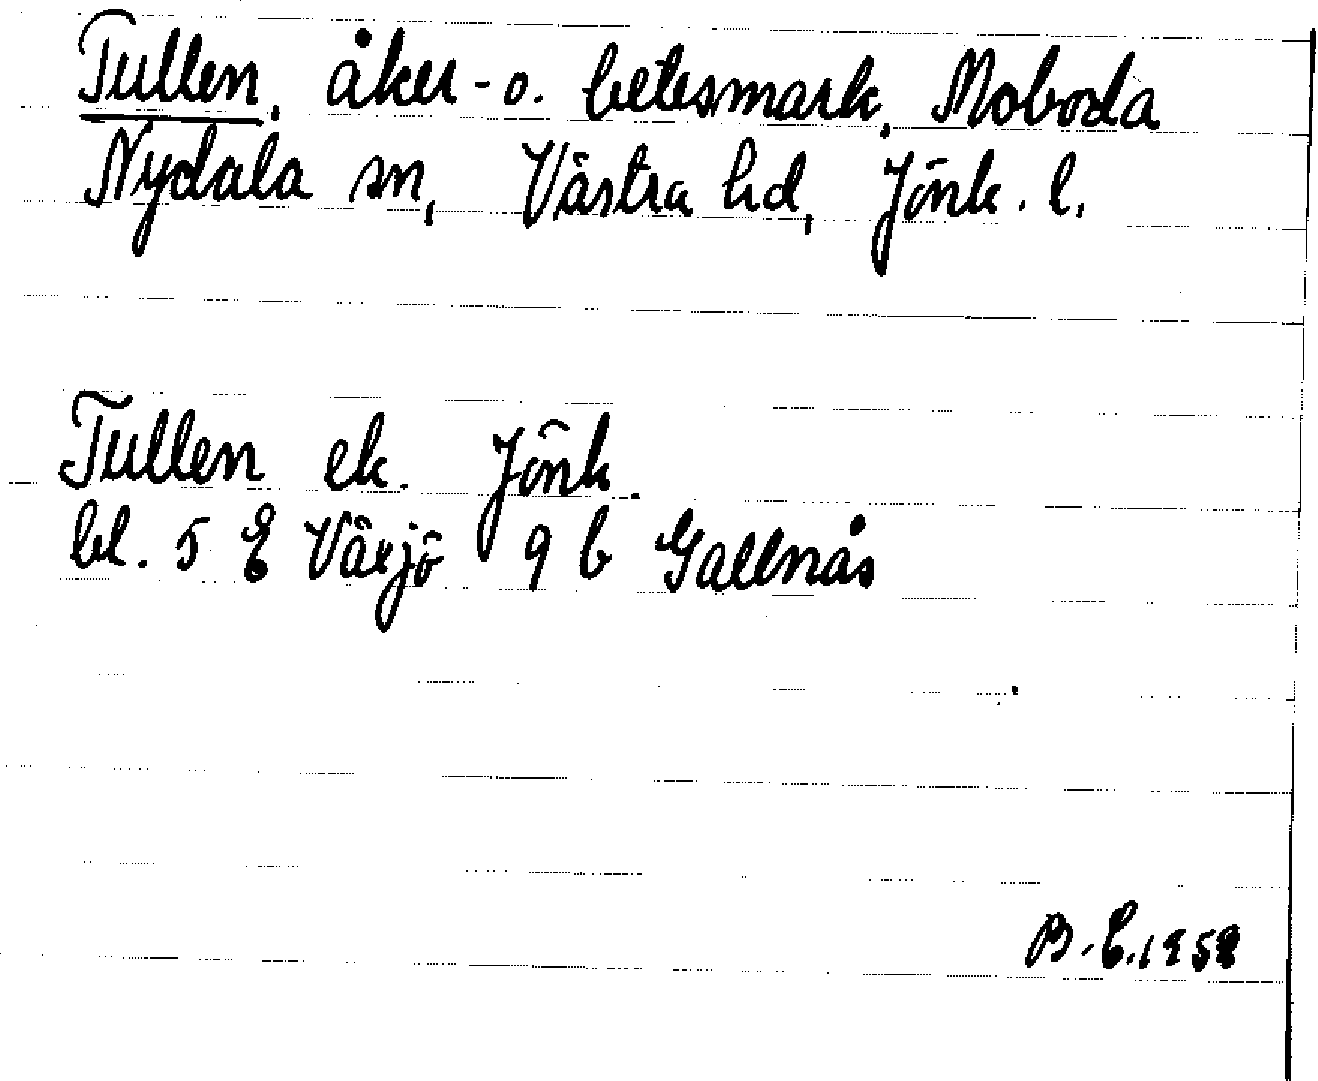 Tullen, åker- o. betesmark, Moboda
Nydala sn, Västra hd, Jönk. l.
Tullen ek. Jönk.
bl. 5 E Växjö 9 b Gallnås
B. E. 1958